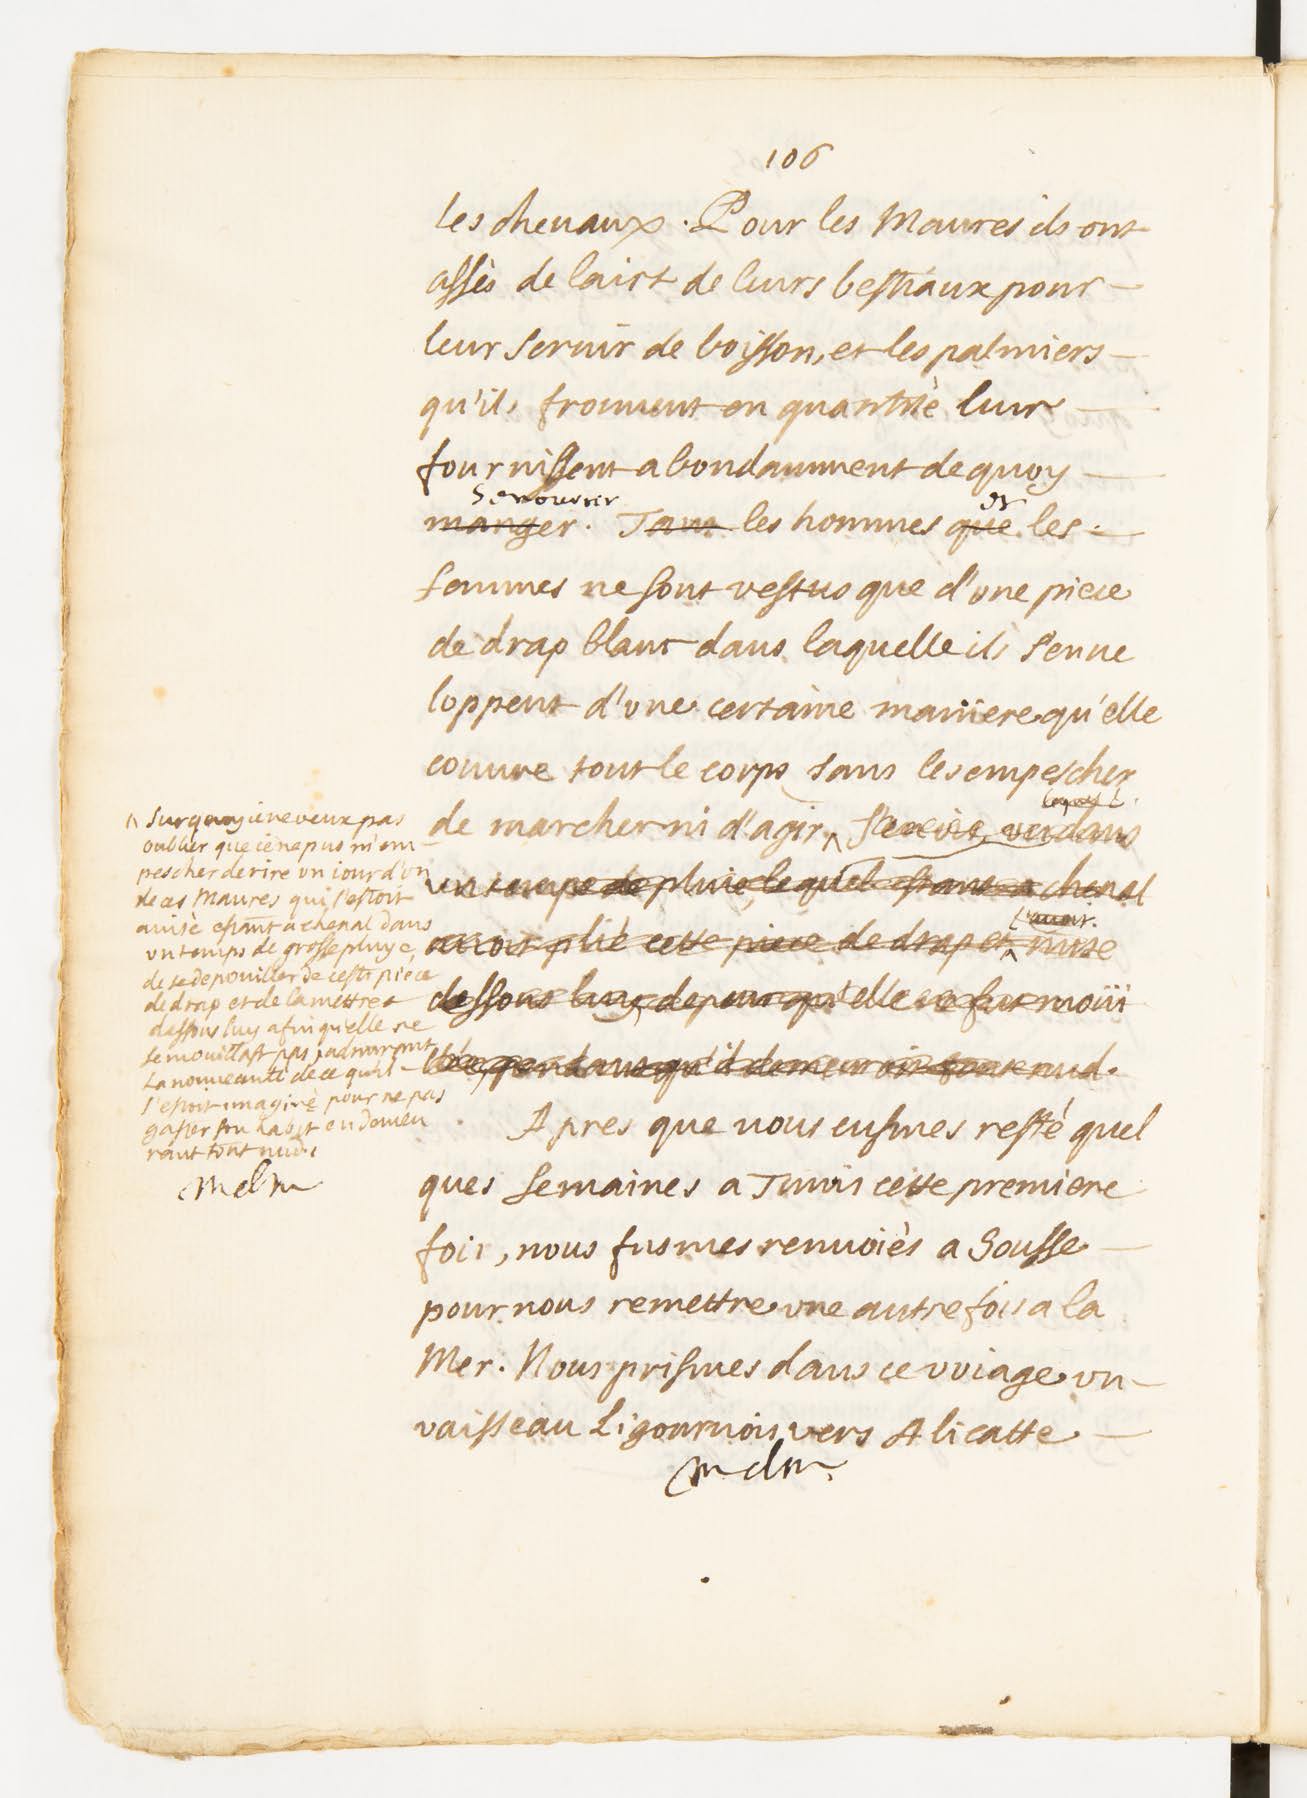 106
les cheuaux. Pour les Maures ils ont
assès de laict de leurs bestiaux pour
leur seruir de boisson, et les palmiers
qu'ils trouuent en quantité leur
fournissent abondamment de quoy
se nourrir
manger. Tant les hommes que les
et
femmes ne sont vestus que d'une piece
de drap blanc dans laquelle ils s'enue
loppent d'une certaine maniere qu'elle
couure tout le corps sans les empescher
de marcher ni d'agir ^ dans
un temps de pluie lequel estant a cheual
auoit plié cette piece de drap et ^ mise
l'auoit
dessous luy, de peur qu'elle ne fut moüi
lée, pendant qu'il demeuroit tout nud.
^ Sur quoy ie ne veux pas
oublier que ie ne pus m'em
pescher de rire un iour d'un
de ces Maures qui s'estoit
auisé estant a cheual dans
un temps de grosse pluye,
de se depouiller de ceste piece
de drap et de la mettre
dessous luy afin qu'elle ne
se mouillast pas, admirant
la nouueauté de ce qu'il
s'estoit imaginé pour ne pas
gaster son habit en demeu
rant tout nud.
Apres que nous eusmes resté quel
ques semaines a Tunis cette premiere
fois, nous fusmes renuoiés a Sousse
pour nous remettre une autre fois a la
Mer. Nous prismes dans ce voiage un
vaisseau Ligournois vers Alicatte